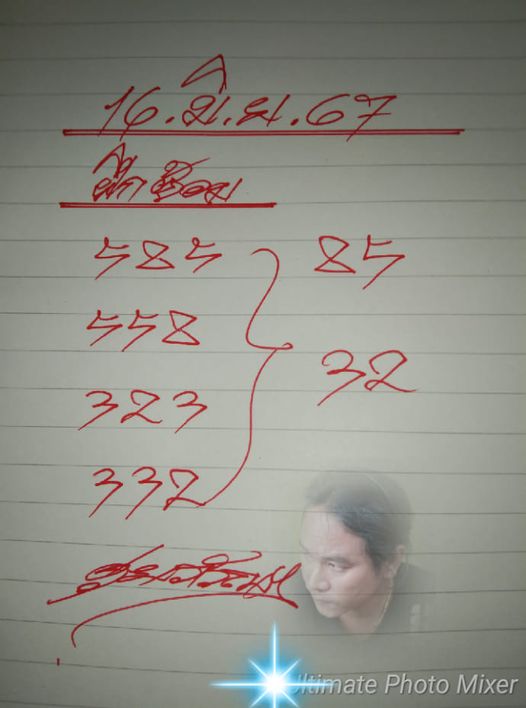 16.มิ.ย.67
ฝึกซ้อม
585 85
558
32
323
332
Ultimate Photo Mixer